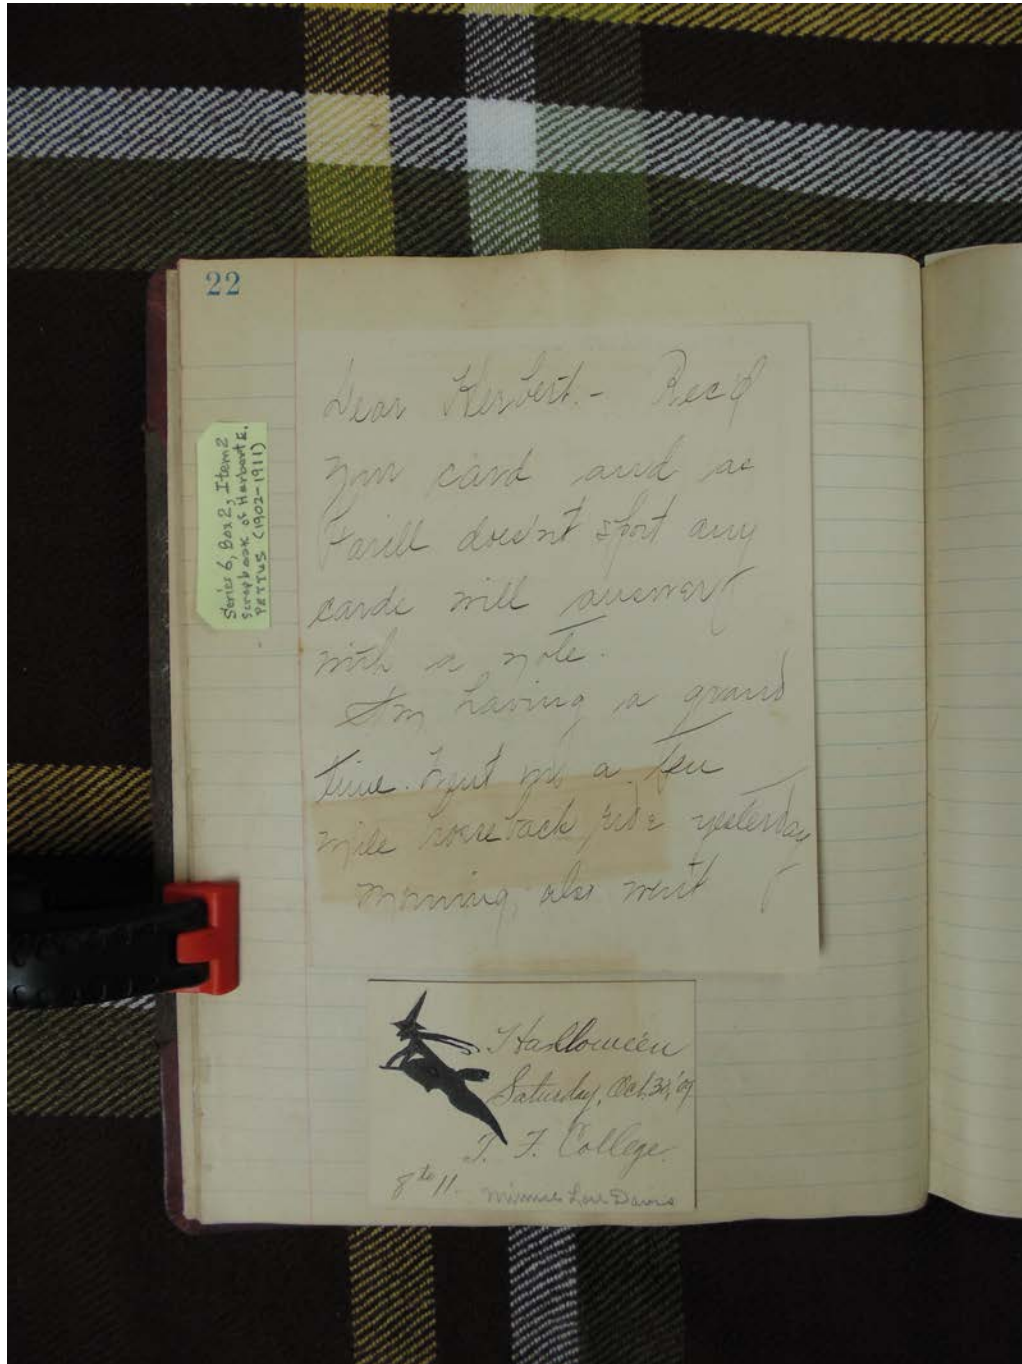 22
Series 6, Box 2, Item 2
Scrapbook of Herbert E.
PETTUS (1902-1911)
Dear Herbert. - Rec'd
your card and as
doesn't sport any
cards will answer
with a note.
Am having a grand
time. Went on a ten
mile horseback ride yesterday
morning, also went
Halloween
Saturday, Oct. 30, '09
T. F. College.
8 to 11.
Minnie Lou Davis